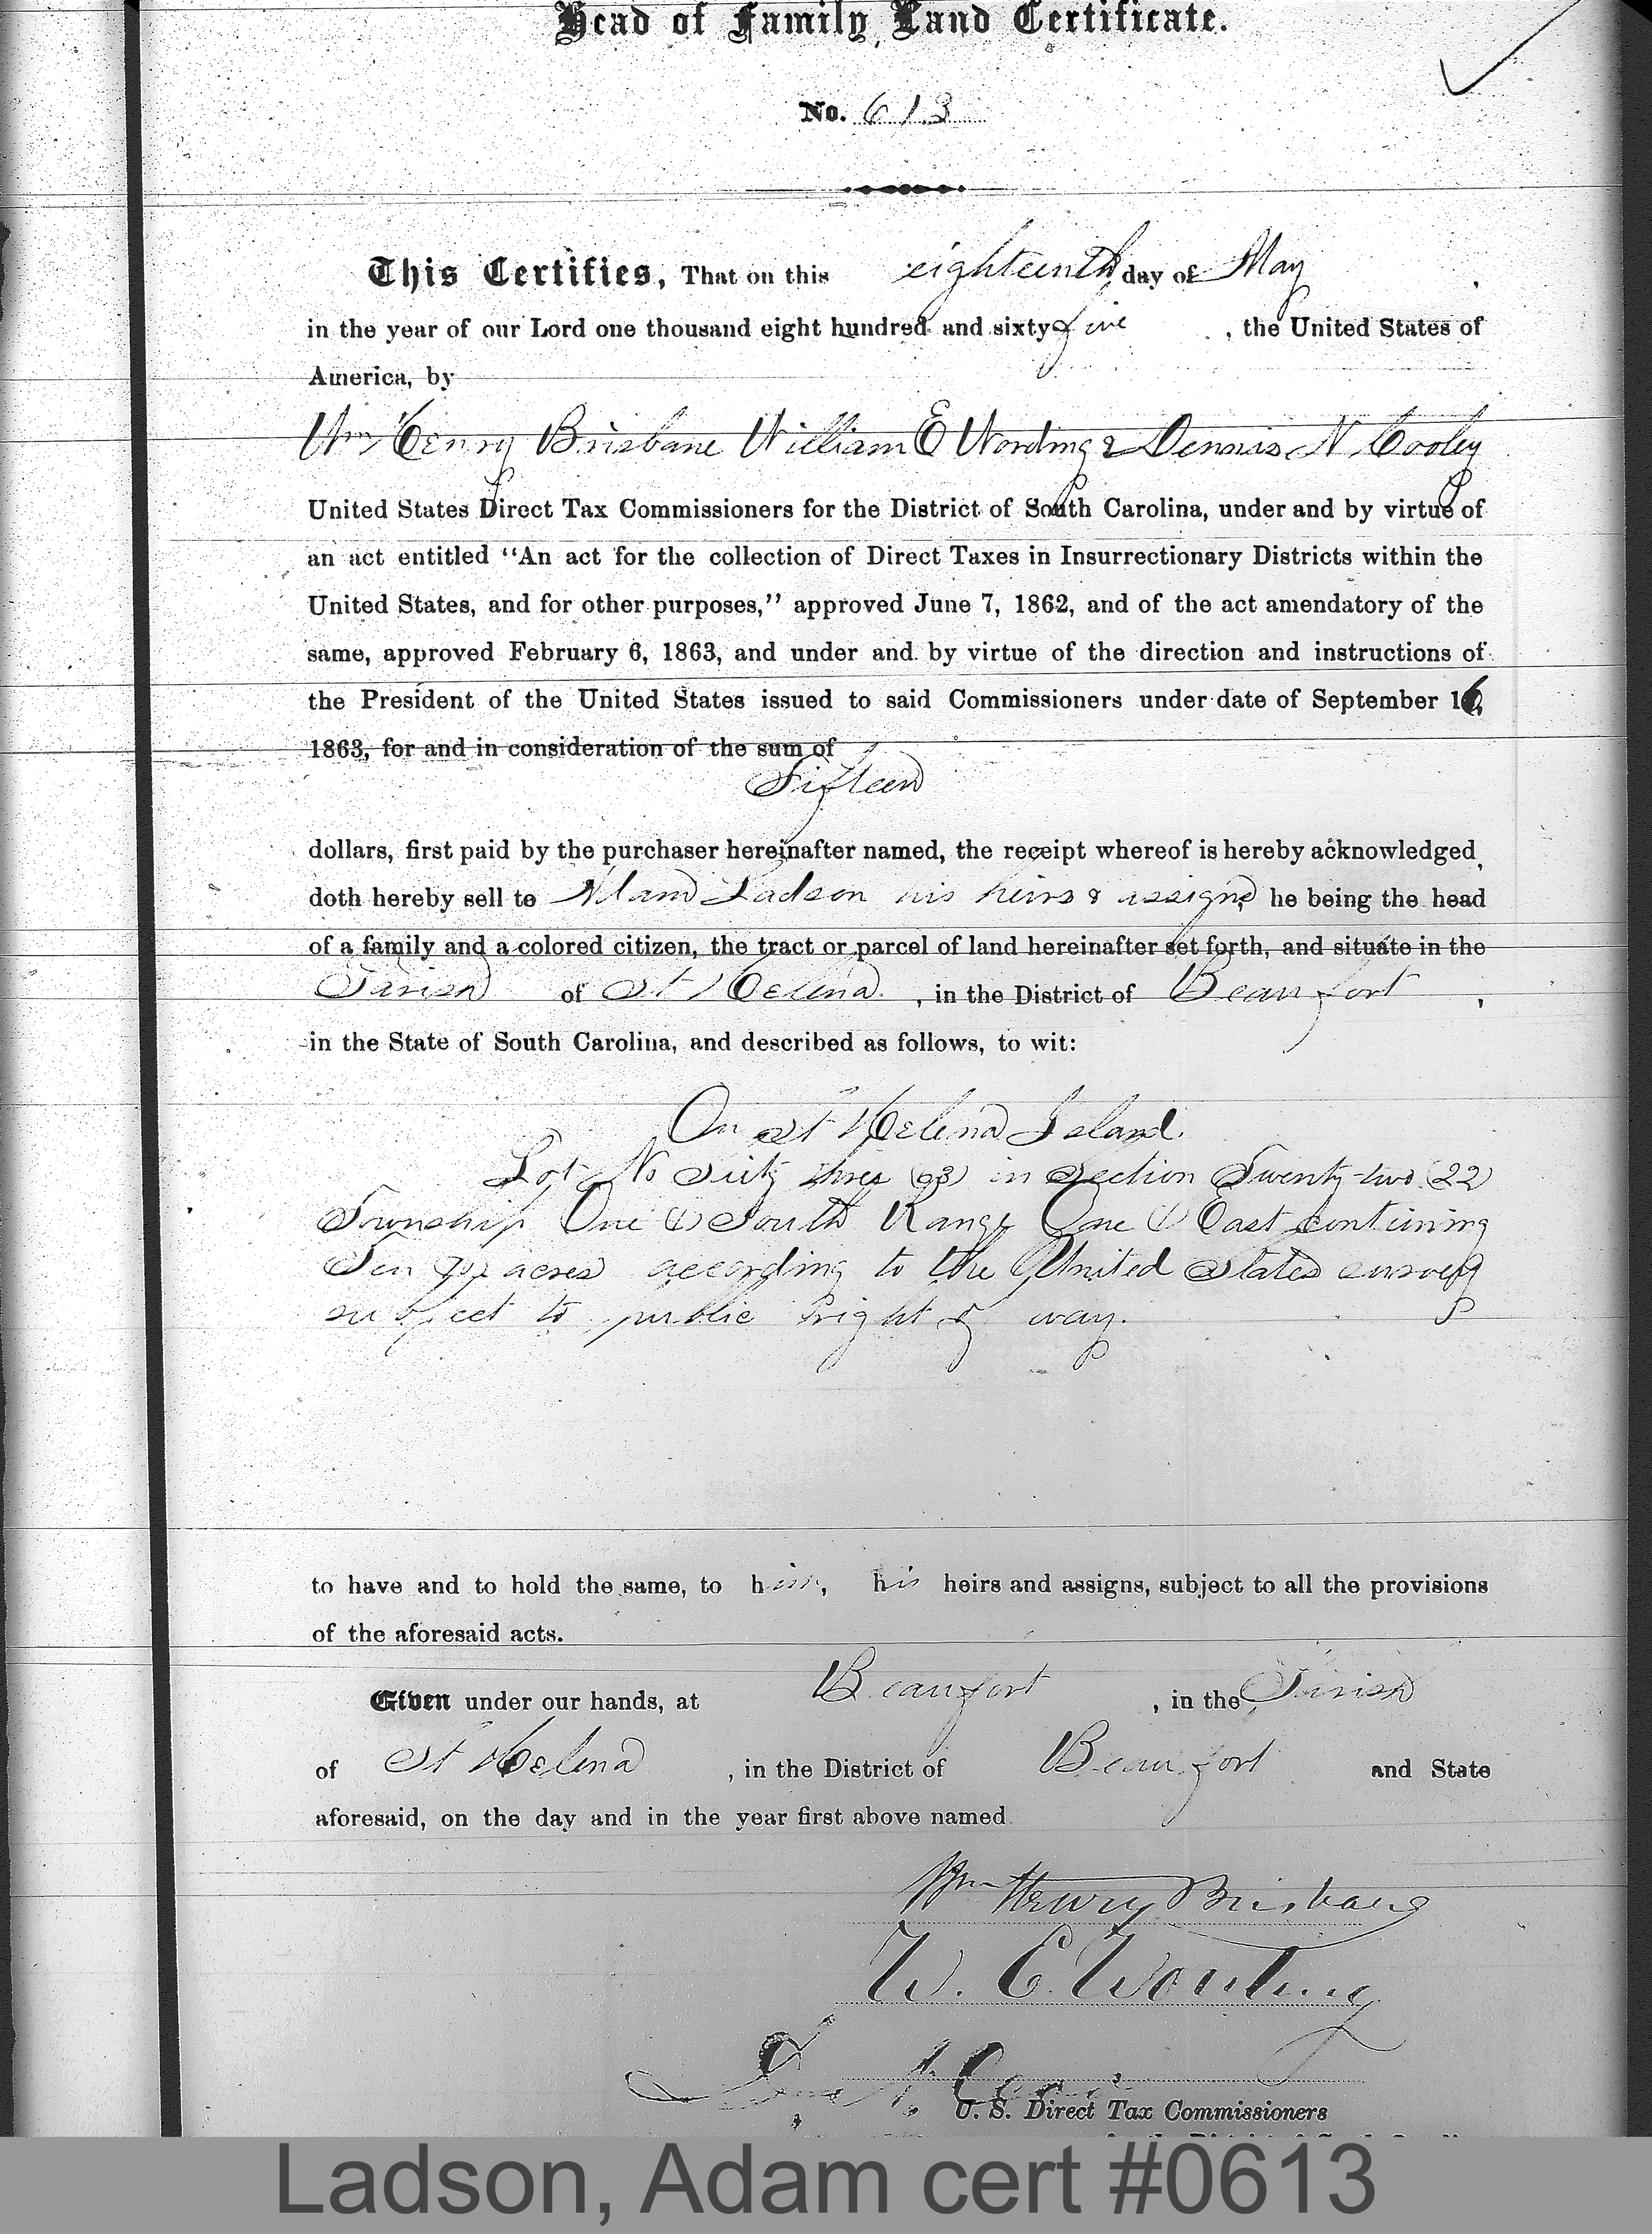 Head of Family Land Certificate.
No. 613
This Certifies, That on this eighteenth day of May
in the year of our Lord one thousand eight hundred and sixty five, the United States of
America, by
Wm Henry Brisbane William E Wording & Dennis N Cooley
United States Direct Tax Commissioners for the District of South Carolina, under and by virtue of
an act entitled “An act for the collection of Direct Taxes in Insurrectionary Districts within the
United States, and for other purposes,” approved June 7, 1862, and of the act amendatory of the
same, approved February 6, 1863, and under and by virtue of the direction and instructions of
the President of the United States issued to said Commissioners under date of September 16,
1863, for and in consideration of the sum of
Fifteen
dollars, first paid by the purchaser hereinafter named, the receipt whereof is hereby acknowledged,
doth hereby sell to Adam Ladson his heirs & assigns, he being the head
of a family and a colored citizen, the tract or parcel of land hereinafter set forth, and situate in the
Parish of St Helena, in the District of Beaufort,
in the State of South Carolina, and described as follows, to wit:
On St Helena Island.
Lot No Sixty three (63) in Section Twenty-two (22)
Township One (1) South Range One (1) East containing
Ten (10) acres according to the United States survey
subject to public right of way.
to have and to hold the same, to him, his heirs and assigns, subject to all the provisions
of the aforesaid acts.
Given under our hands, at Beaufort, in the Parish
of St Helena, in the District of Beaufort and State
aforesaid, on the day and in the year first above named
Wm Henry Brisbane
W. E. Wording
Den N. Cooley
U. S. Direct Tax Commissioners
Ladson, Adam cert #0613